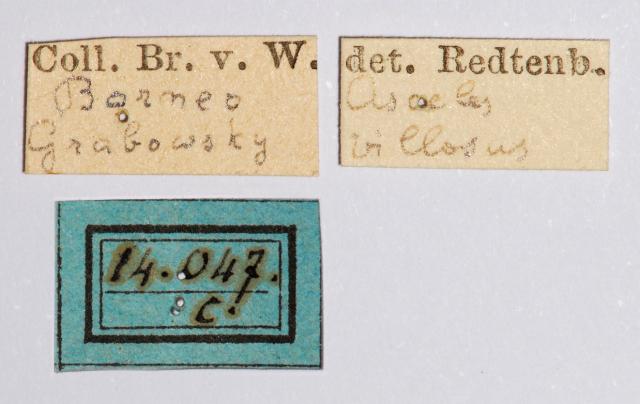 Coll. Br. v. W.
Borneo
Grabowsky
det. Redtenb.
villosus
14.047.
c.